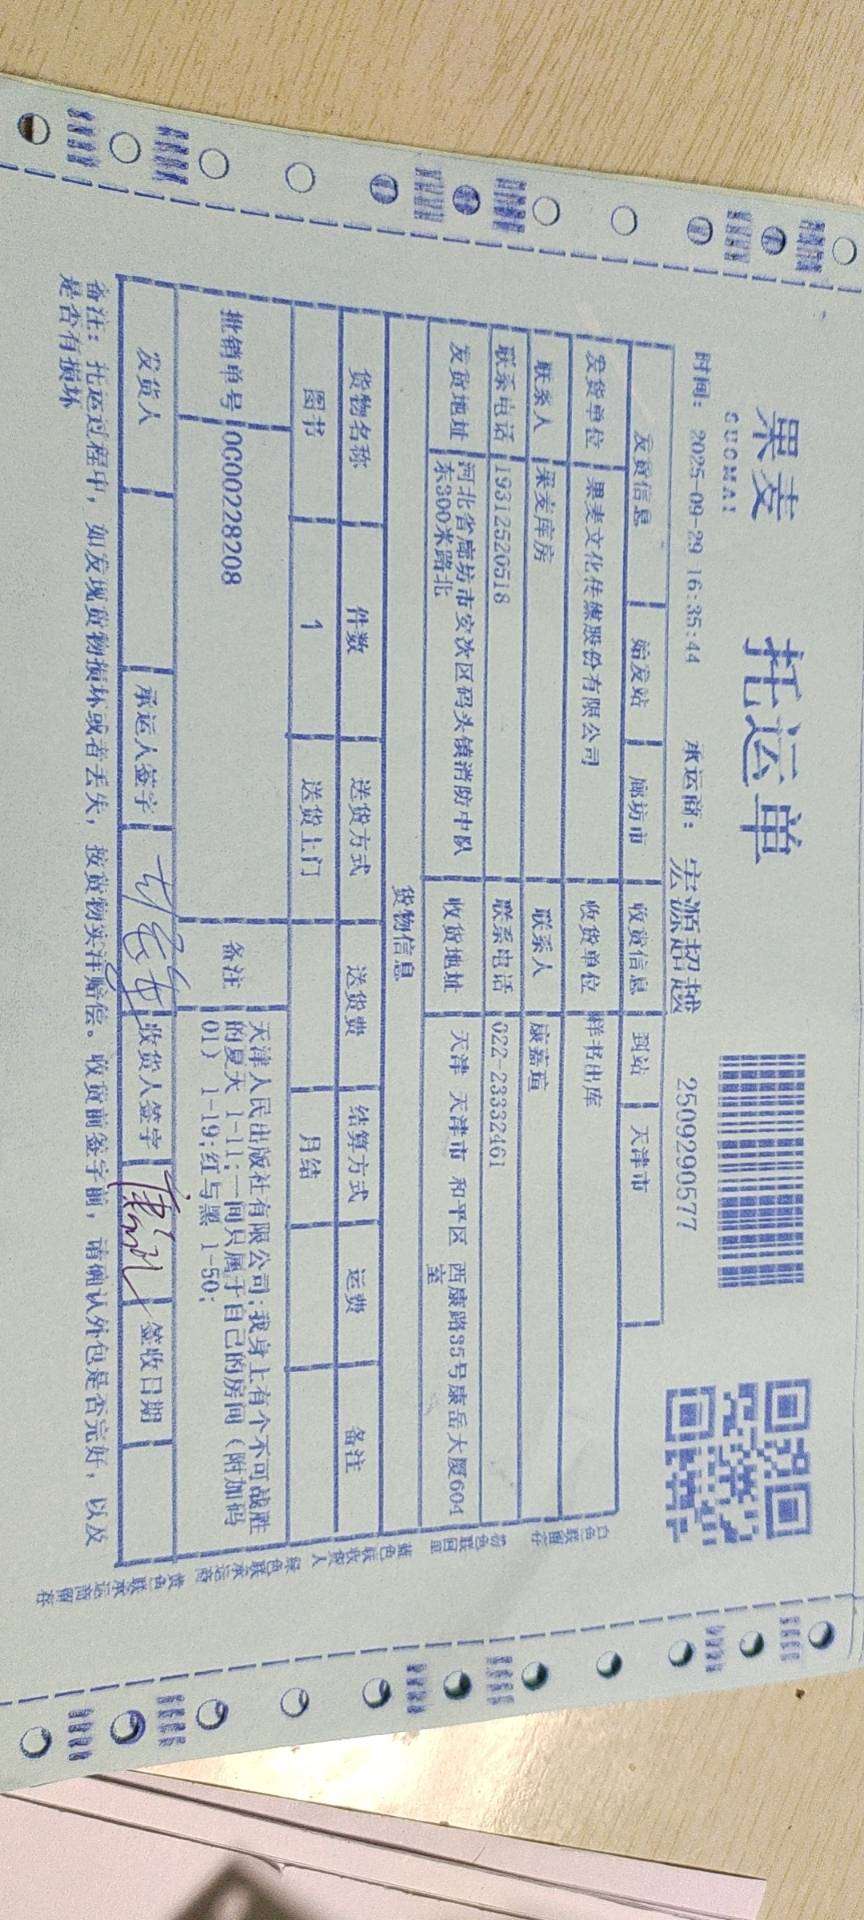 果麦
GUOMAI
托运单
2509290577
时间: 2025-09-29 16:35:44 承运商: 宏源超越
发货信息 始发站 廊坊市 收货信息 到站 天津市
发货单位 果麦文化传媒股份有限公司 收货单位 样书出库
联系人 果麦库房 联系人 康嘉瑄
联系电话 19312520518 联系电话 022-23332461
发货地址 河北省廊坊市安次区码头镇消防中队东300米路北 收货地址 天津 天津市 和平区 西康路35号康岳大厦604室
货物信息
货物名称 件数 送货方式 送货费 结算方式 运费 备注
图书 1 送货上门 月结
批销单号 0000228208 备注 天津人民出版社有限公司;我身上有个不可战胜
的夏天 1-11;一间只属于自己的房间（附加码
01）1-19;红与黑 1-50;
发货人 承运人签字 收货人签字 签收日期
备注: 托运过程中, 如发现货物损坏或者丢失, 按货物实洋赔偿。收货前签字前, 请确认外包是否完好, 以及
是否有损坏
白色联留存 粉色联回单 蓝色联收货人 绿色联承运商 黄色联承运商留存